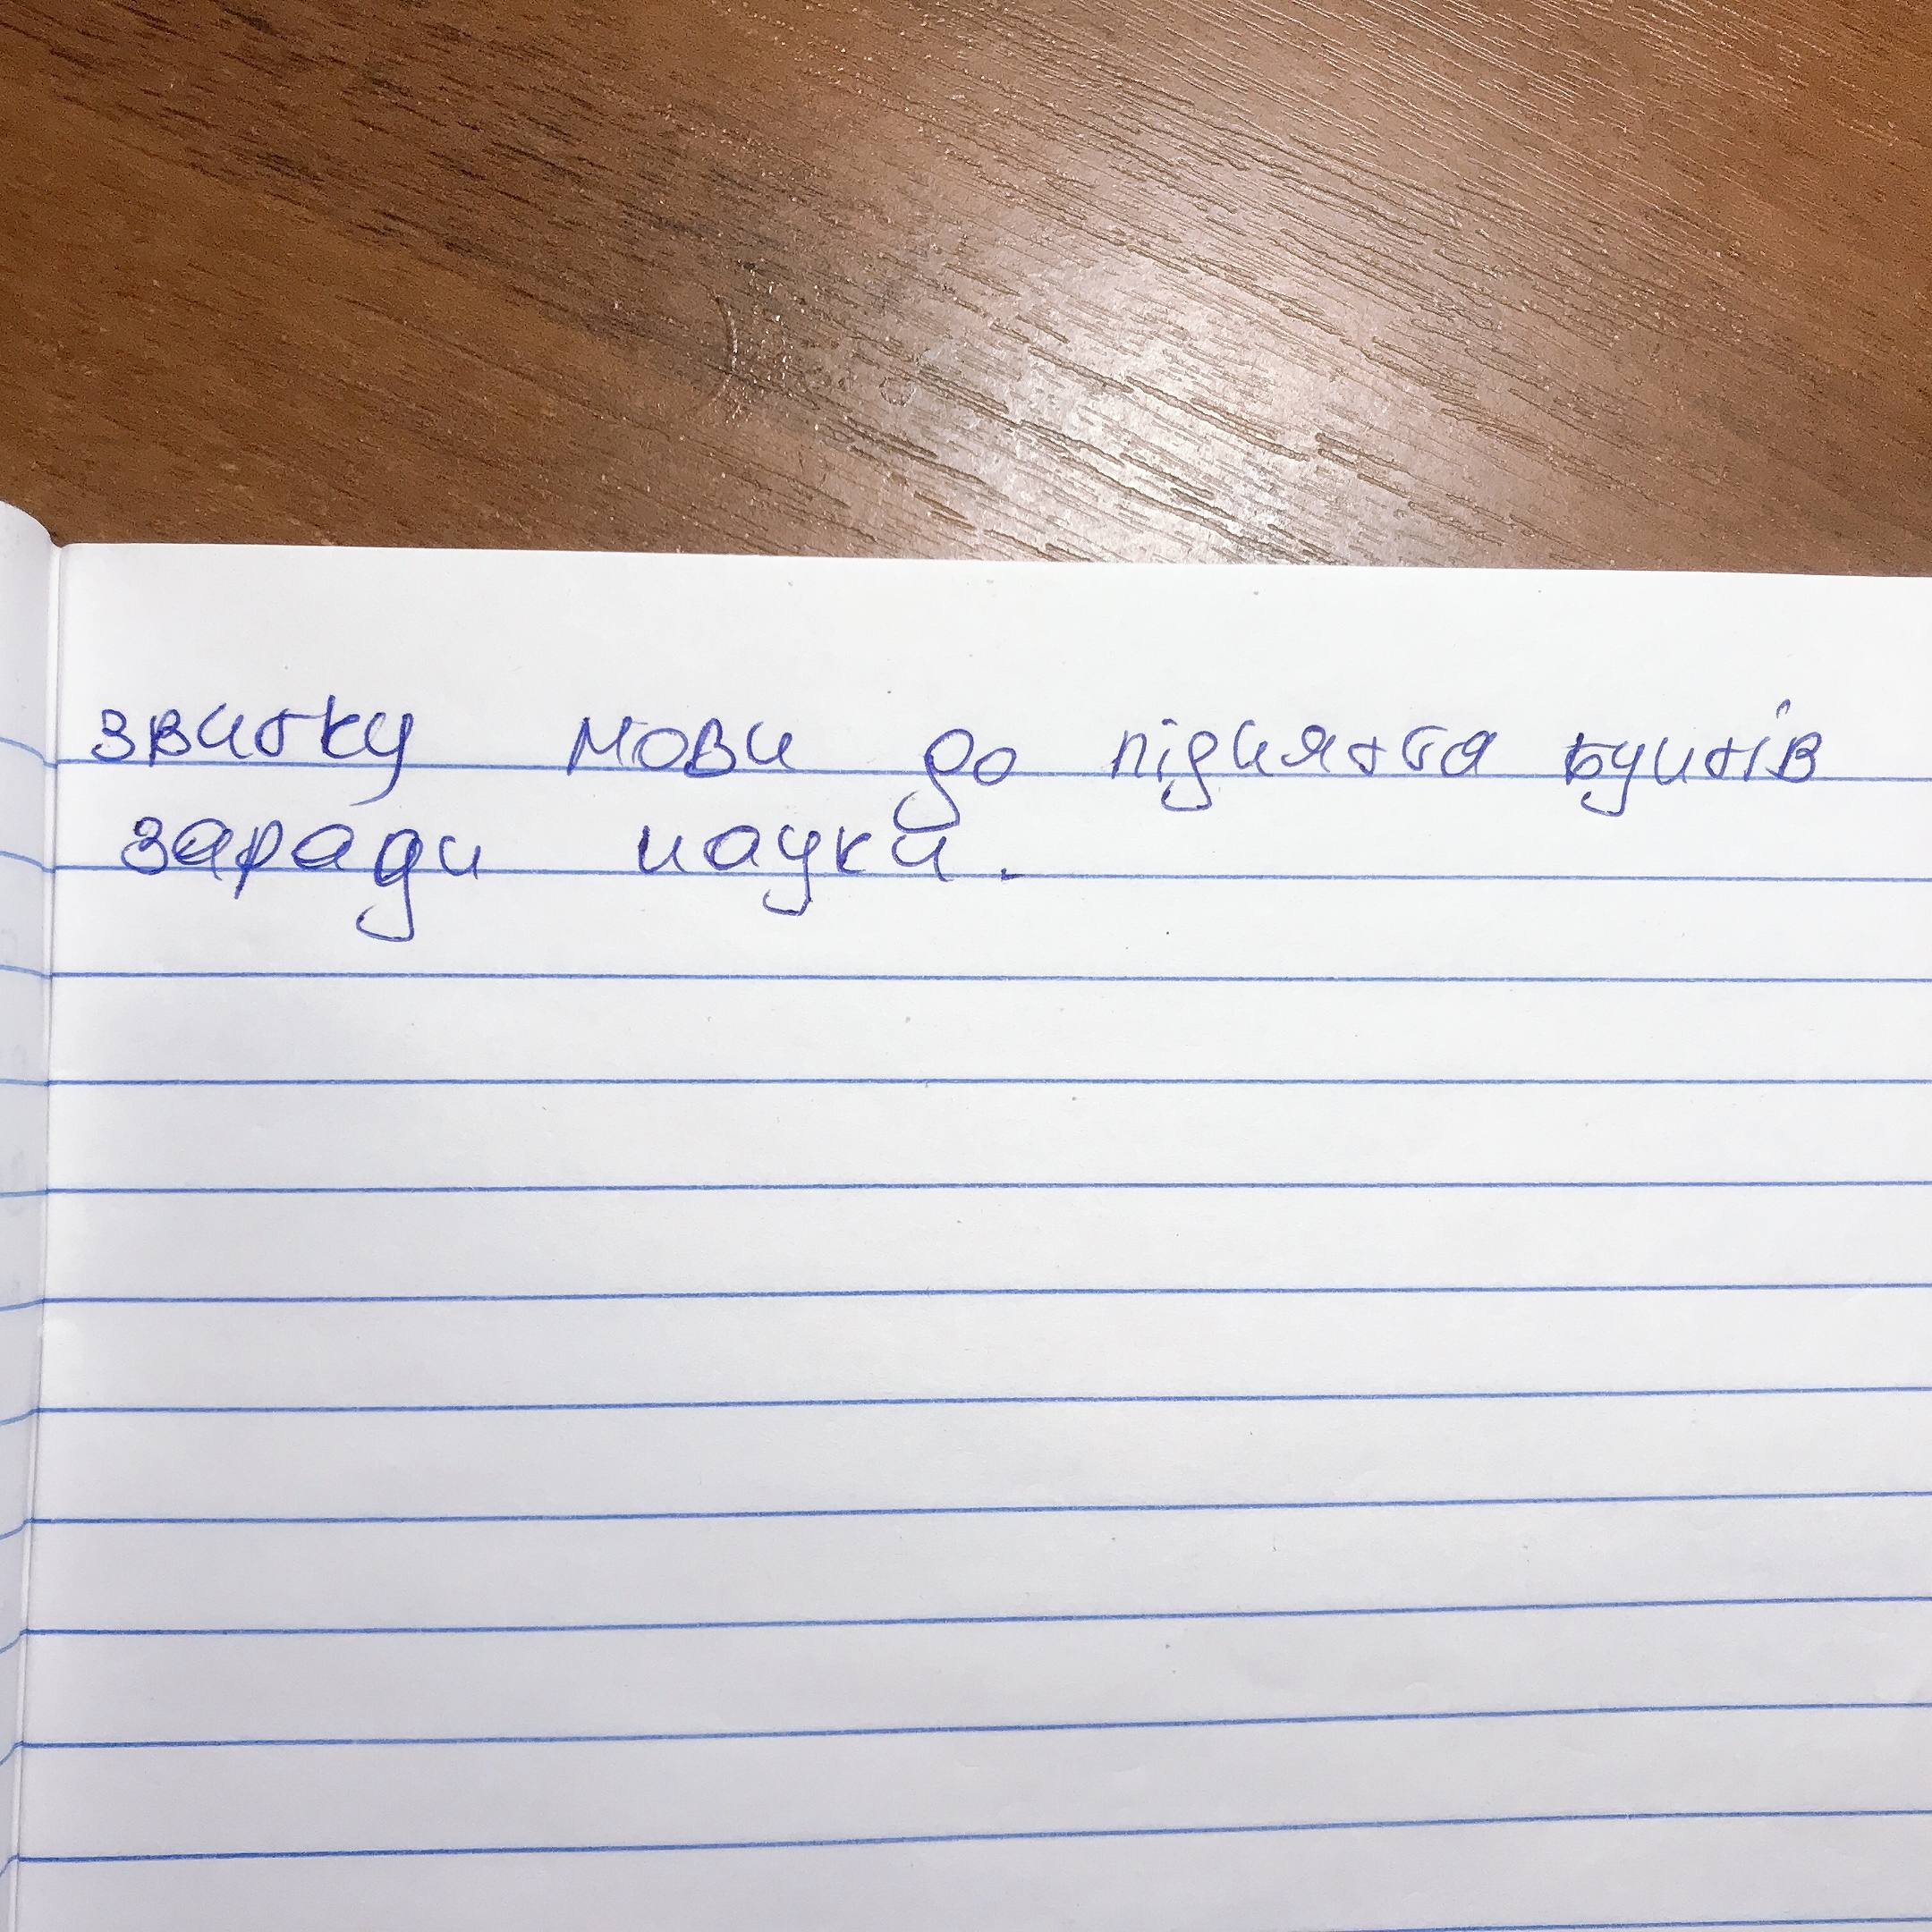 звитку мови до підняття бунтів
заради науки.